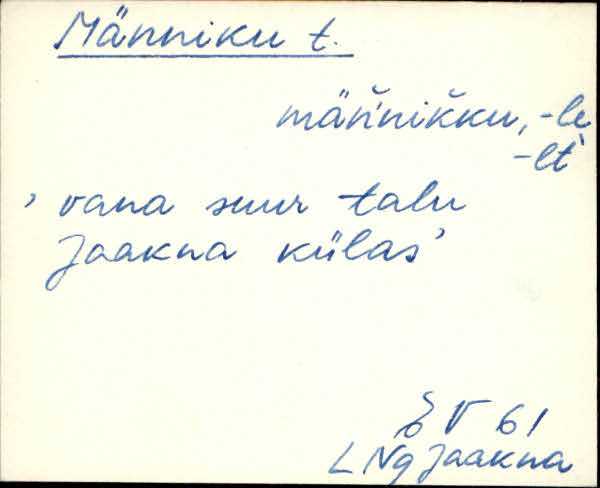 Männiku t.
mäňnikku, -le
-lt
, vana suur talu
Jaakna külas'
EV 61
LNg Jaakna